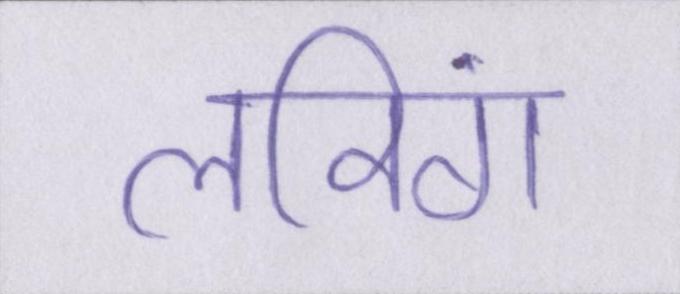 लविंग